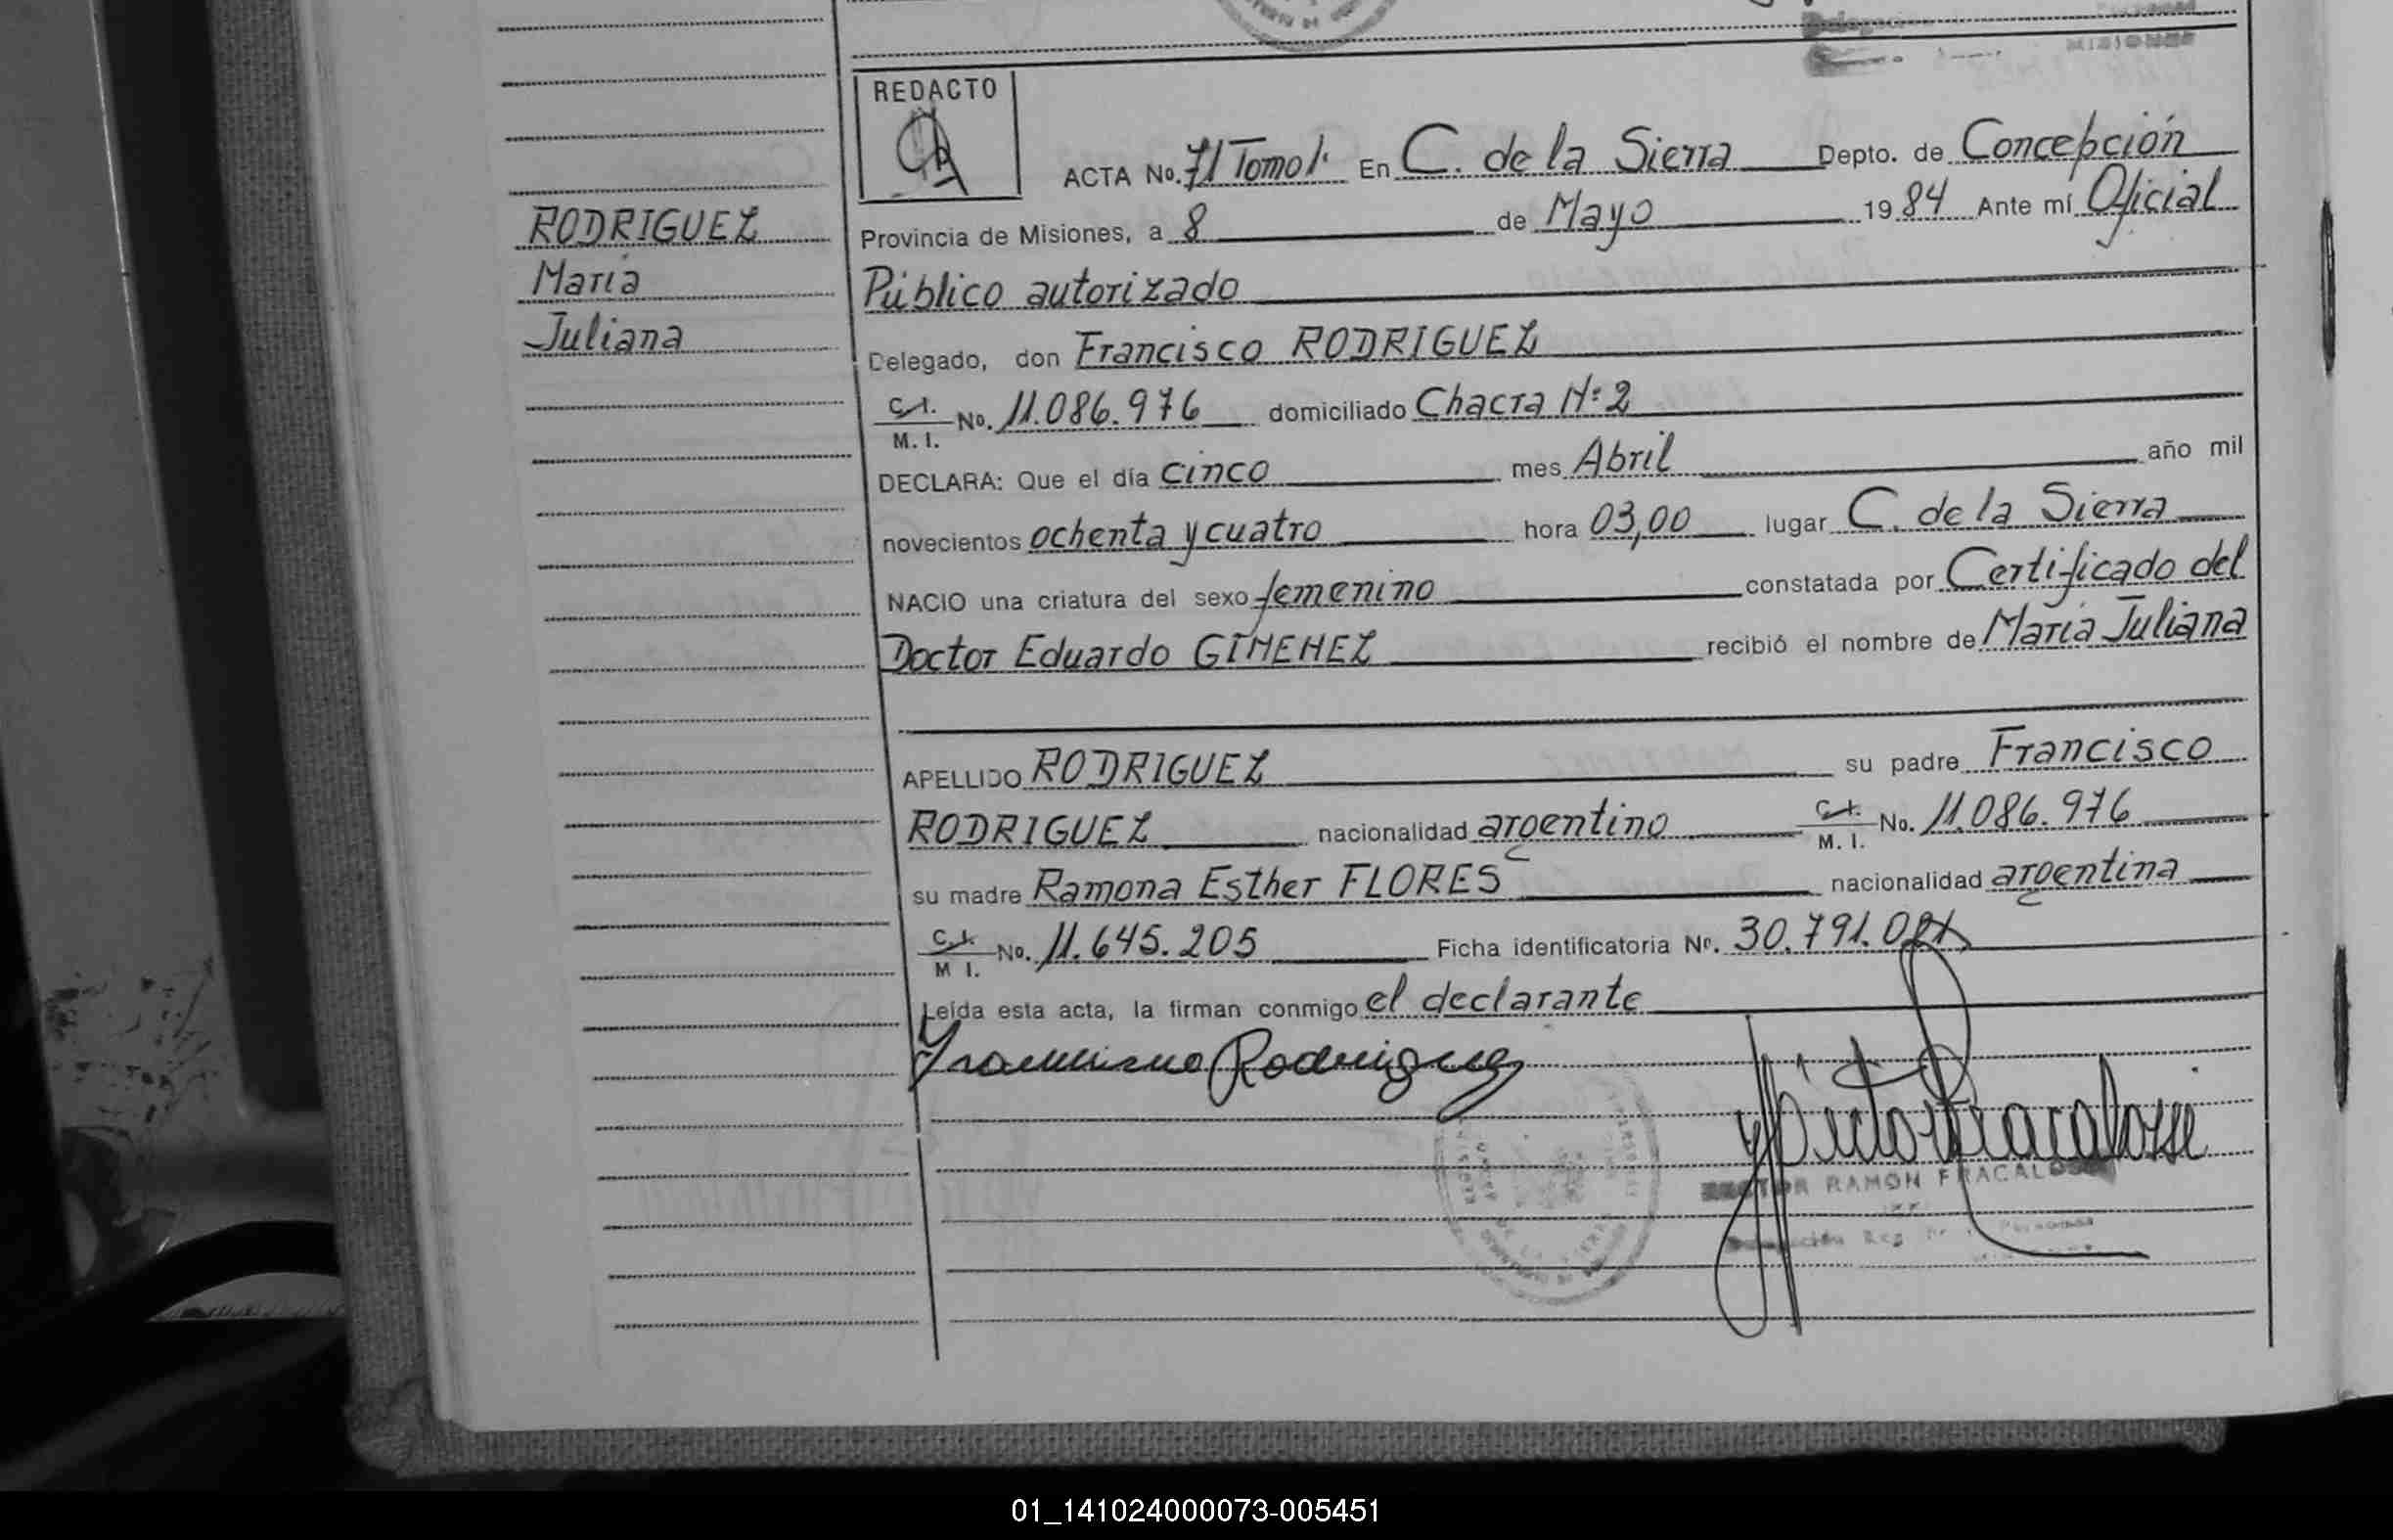 REDACTO
MISIONES
ACTA No. 71 Tomo 1º En C. de la Sierra Depto. de Concepción
RODRIGUEZ
Provincia de Misiones, a 8 de Mayo 1984 Ante mí Oficial
María
Público autorizado
Juliana
Delegado, don Francisco RODRIGUEZ
C.I. M.I. No. 11.086.976 domiciliado Chacra Nº 2
DECLARA: Que el día cinco mes Abril año mil
novecientos ochenta y cuatro hora 03,00 lugar C. de la Sierra
NACIO una criatura del sexo femenino constatada por Certificado del
Doctor Eduardo GIMENEZ recibió el nombre de María Juliana
APELLIDO RODRIGUEZ su padre Francisco
RODRIGUEZ nacionalidad argentino C.I. M.I. No. 11.086.976
su madre Ramona Esther FLORES nacionalidad argentina
C.I. M I. No. 11.645.205 Ficha identificatoria Nº. 30.791.021
Leída esta acta, la firman conmigo el declarante
Francisco Rodriguez
RAMON FRACALOSSI
01_141024000073-005451